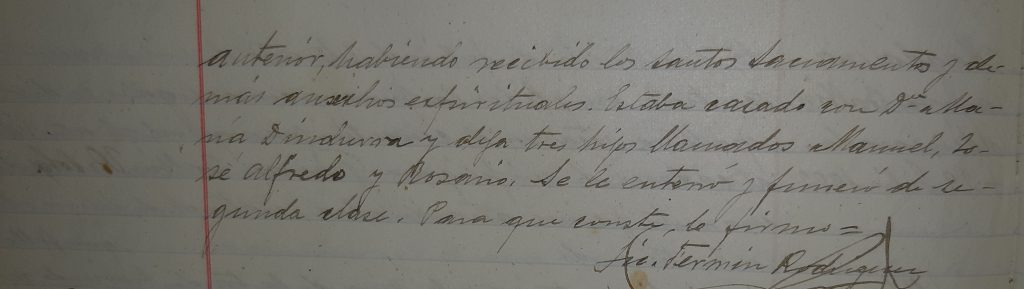 anterior, habiendo recibido los santos Sacramentos y de-
más auxilios espirituales. Estaba casado con Dña Ma-
ría y deja tres hijos llamados Manuel, Jo-
sé Alfredo y Rosario. Se le enterró y funeró de se-
gunda clase. Para que conste, lo firmo=
Lic. Fermín Rodríguez